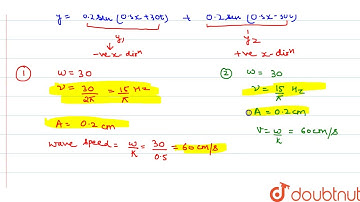 y = 0.2 sin (0.5x+30t) + 0.2 sin (0.5x-30t)
y₁ y₂
-ve x-dirⁿ +ve x-dirⁿ
① ω = 30
ν = 30/2π = 15/π Hz
A = 0.2 cm
wave speed = ω/k = 30/0.5 = 60 cm/s
② ω = 30
ν = 15/π Hz
A = 0.2 cm
V = ω/k = 60 cm/s
doubtnut